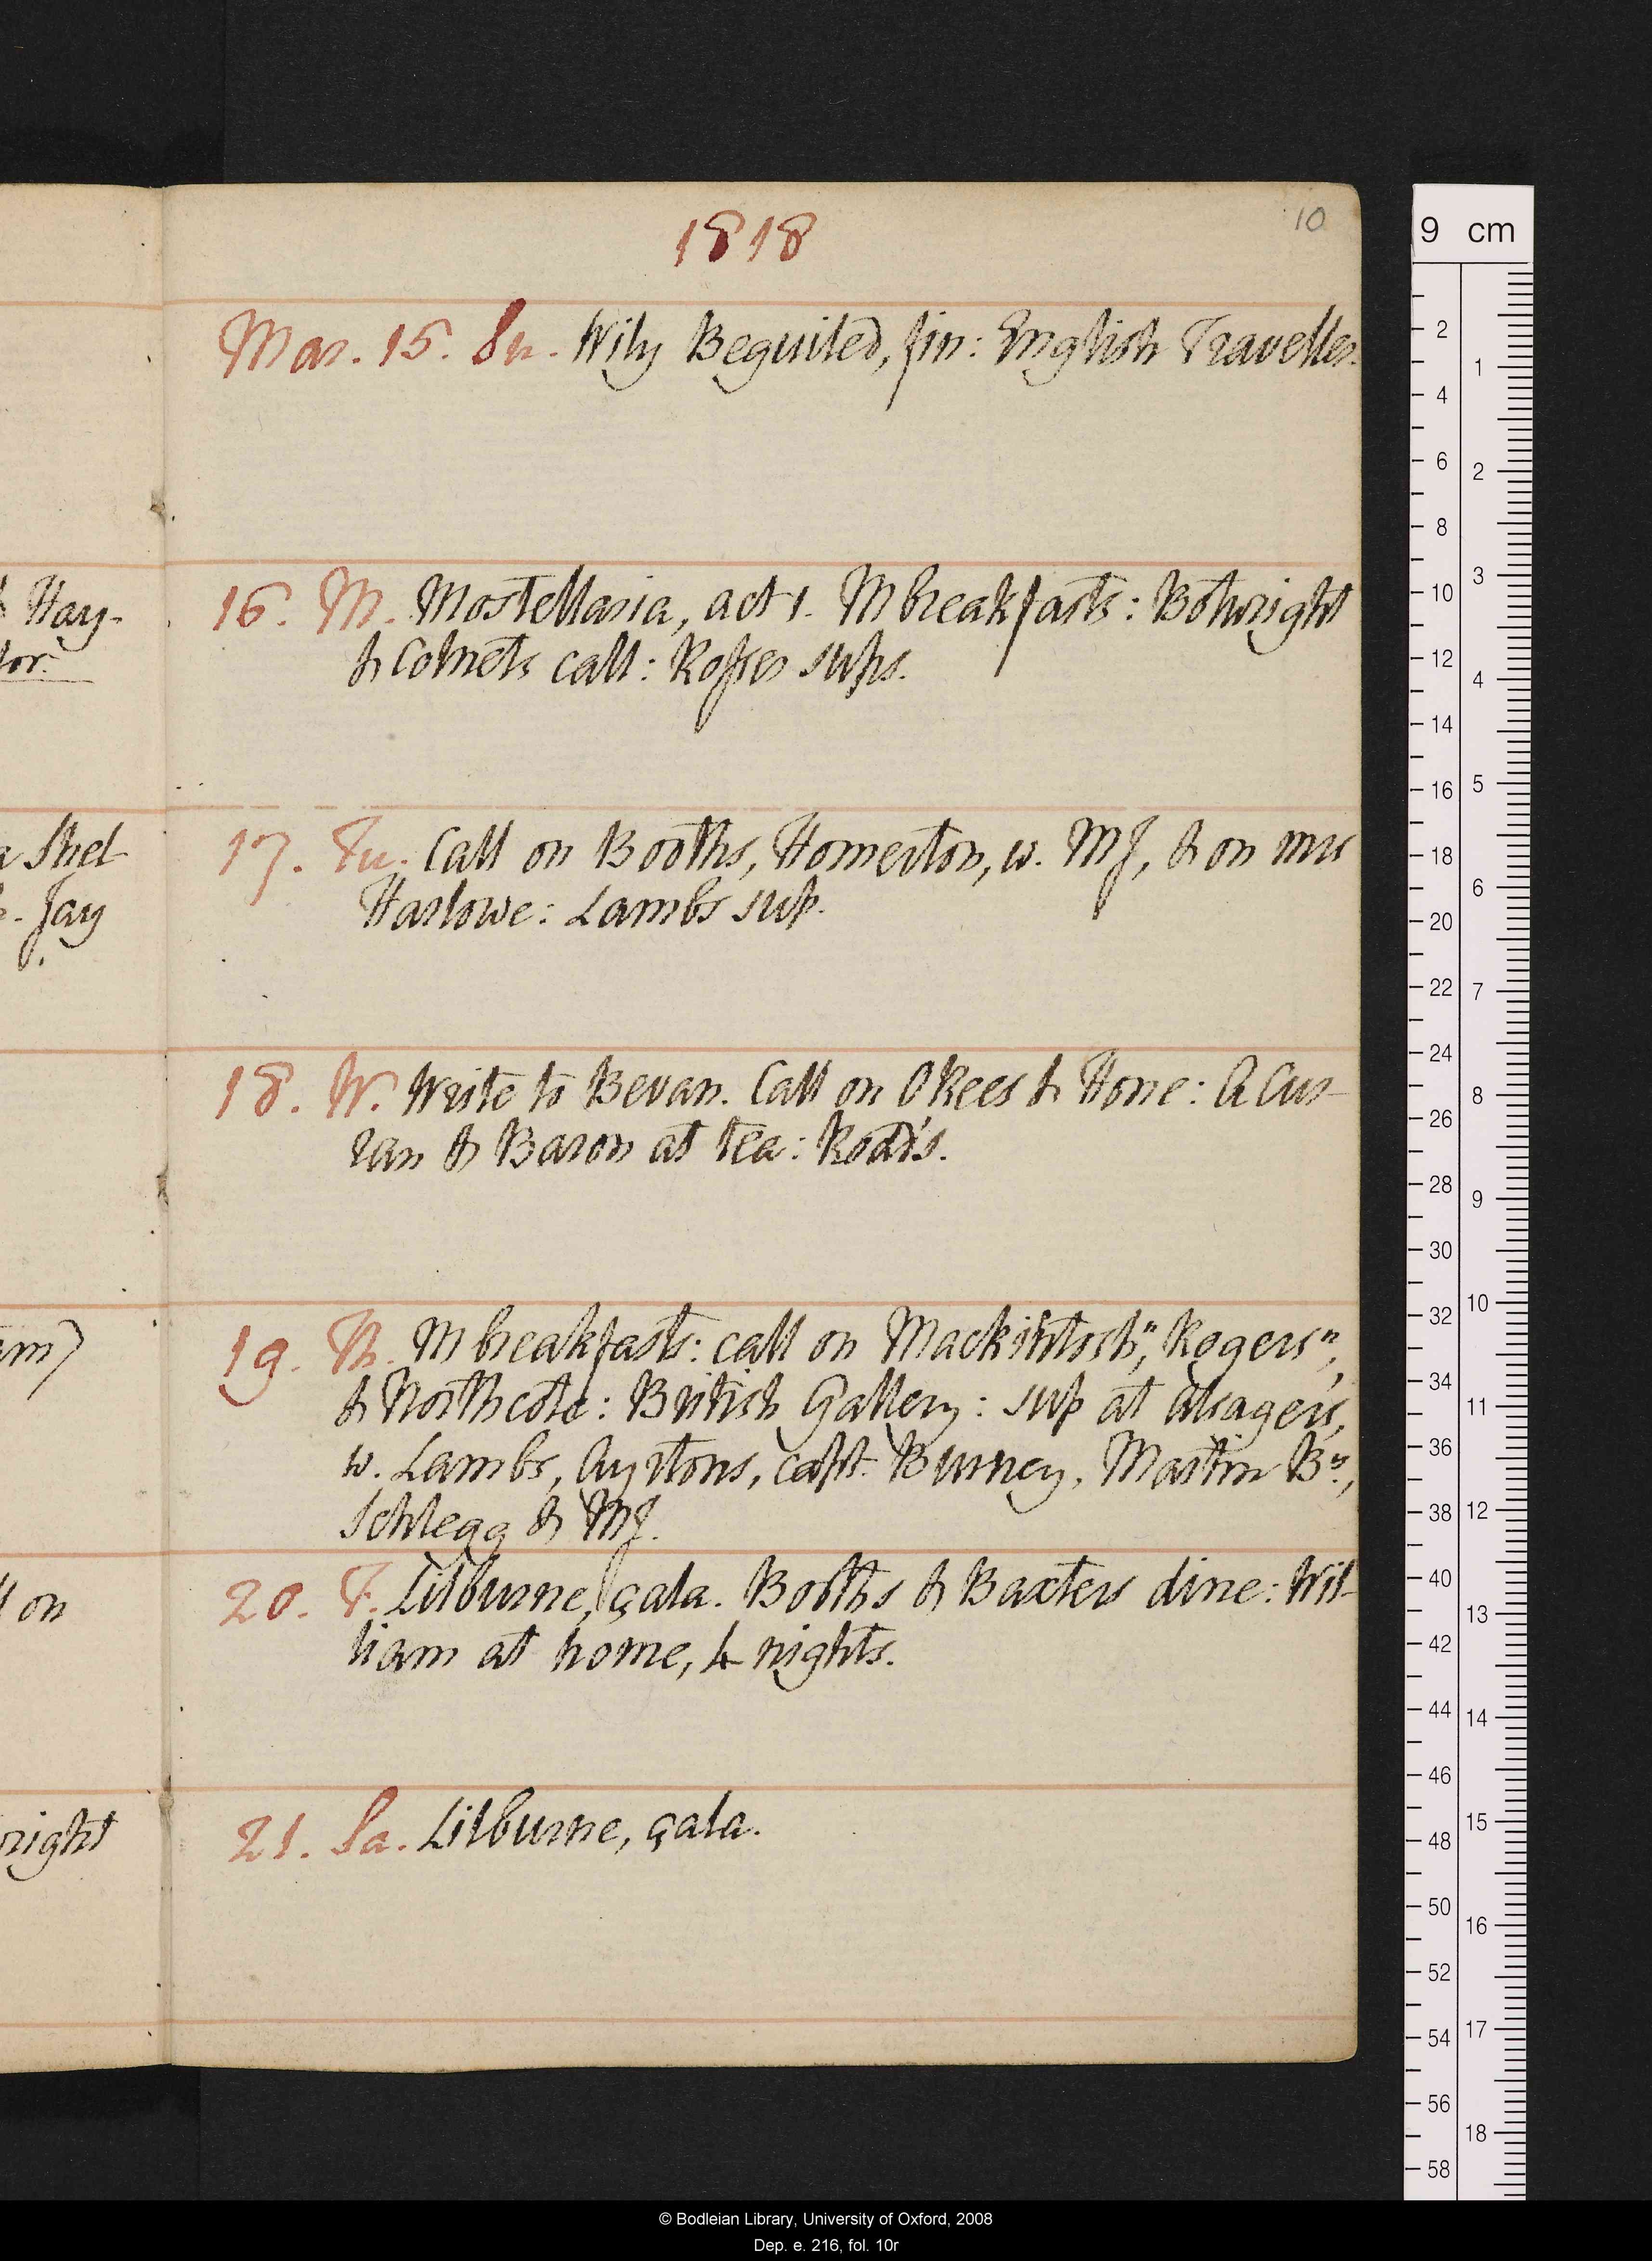 1818
10
Mar. 15. Su. Wily Beguiled, fin: English Traveller.
16. M. Mostellaria, act 1. M breakfasts: Botwright
& Colnets call: Rosser sups.
17. Tu. Call on Booths, Homerton, w. MJ, & on mrs
Harlowe: Lambs sup.
18. W. Write to Bevan. Call on OKees & Hone: A Cur-
ran & Baron at tea:
19. Th. M breakfasts: call on Mackintosh n, Rogers n,
& Northcote: British Gallery: sup at Alsager's,
w. Lambs, Ayrtons, capt. Burney, Martin B n,
Schlegg & MJ.
20. F. Lilburne, çala. Booths & Baxters dine: Wil-
liam at home, 4 nights.
21. Sa. Lilburne, çala.
Hay-
tor.
Shel-
Jay
am)
on
right
9 cm
2 4 6 8 10 12 14 16 18 20 22 24 26 28 30 32 34 36 38 40 42 44 46 48 50 52 54 56 58
1 2 3 4 5 6 7 8 9 10 11 12 13 14 15 16 17 18
© Bodleian Library, University of Oxford, 2008
Dep. e. 216, fol. 10r